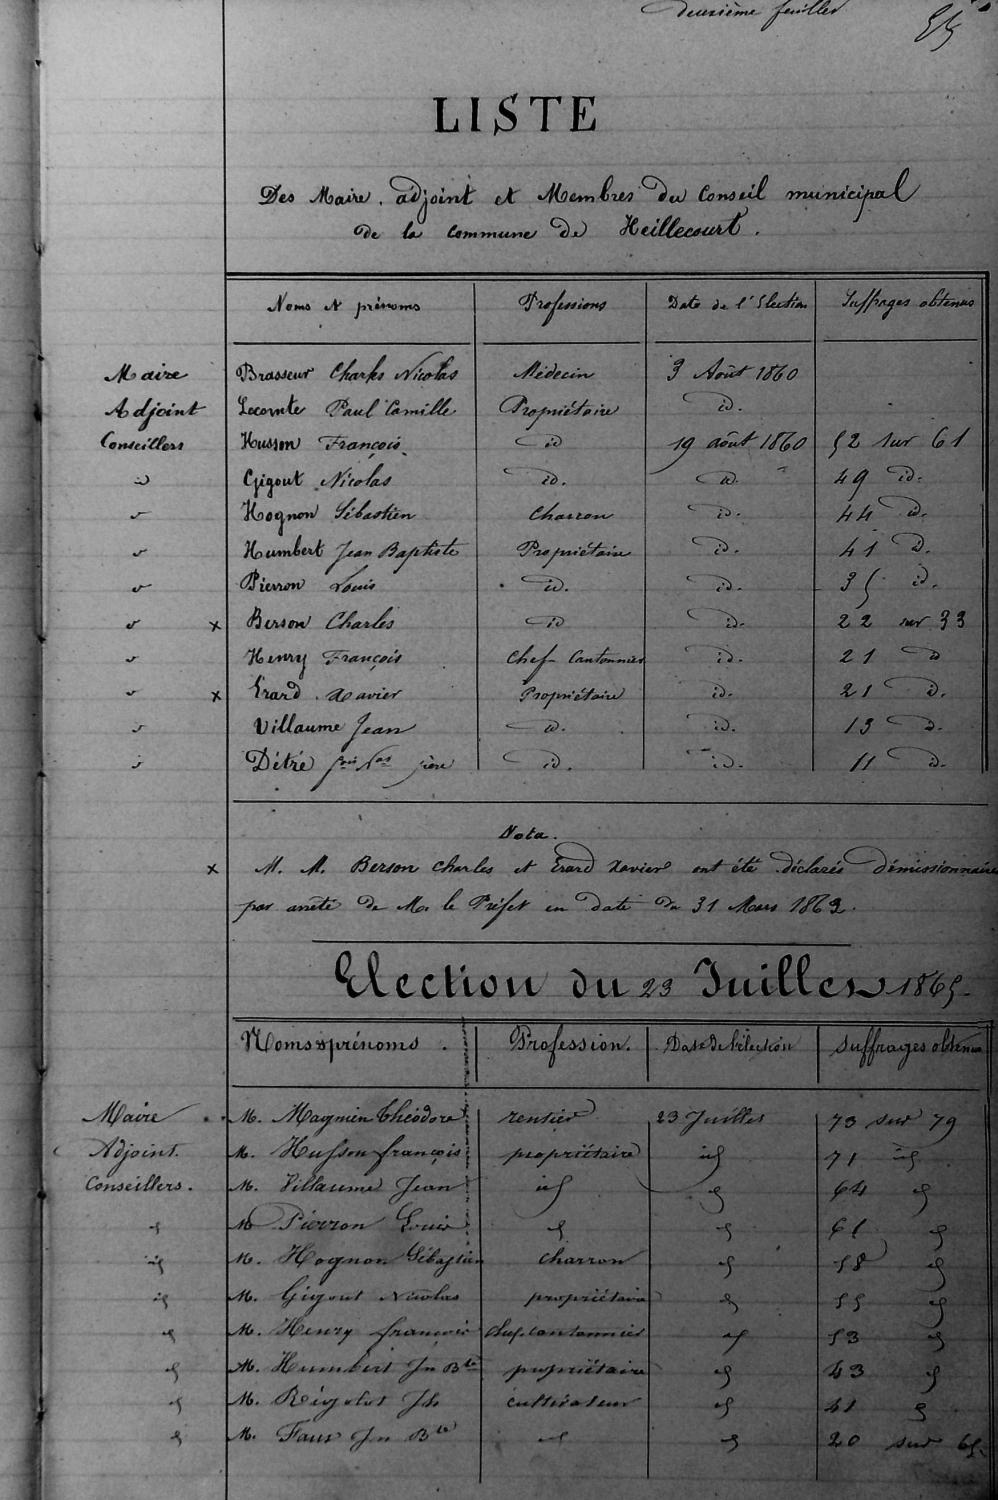 deuxième feuillet
LISTE
Des Maire, adjoint et Membres du Conseil municipal
de la Commune de Heillecourt.
Noms et prénoms Professions Date de l'Election Suffrages obtenus
Maire Brasseur Charles Nicolas Médecin 3 Août 1860
Adjoint Lecomte Paul Camille Propriétaire id.
Conseillers Husson François id 19 août 1860 52 sur 61
id Gigout Nicolas id. id. 49 id.
id Hognon Sébastien Charron id. 44 id.
id Humbert Jean Baptiste Propriétaire id. 41 id.
id Pierron Louis id. id. 35 id.
id x Berson Charles id id. 22 sur 33
id Henry François Chef-Cantonnier id. 21 id
id x Erard Xavier Propriétaire id. 21 id.
id Villaume Jean id. id. 13 id.
id Détré père id. id. 11 id.
Nota.
x M. M. Berson Charles et Erard Xavier ont été déclarés démissionnaires
par arrêté de M. le Préfet en date du 31 Mars 1862.
Election du 23 Juillet 1865
Noms & prénoms. Profession. Date de l'élection Suffrages obtenus
Maire M. Magnien Théodore rentier 23 Juillet 73 sur 79
Adjoint. M. Husson françois propriétaire id 71 id
Conseillers. M. Villaume Jean id id 64 id
id M Pierron Louis id id 61 id
id M. Hognon Sébastien charron id 58 id
id M. Gigout Nicolas propriétaire id 55 id
id M. Henry françois chef cantonnier id 53 id
id M. Humbert Jn Bte propriétaire id 43 id
id M. Rigolot Jh cultivateur id 41 id
id M. Faur Jn Bte id id 20 sur 65.